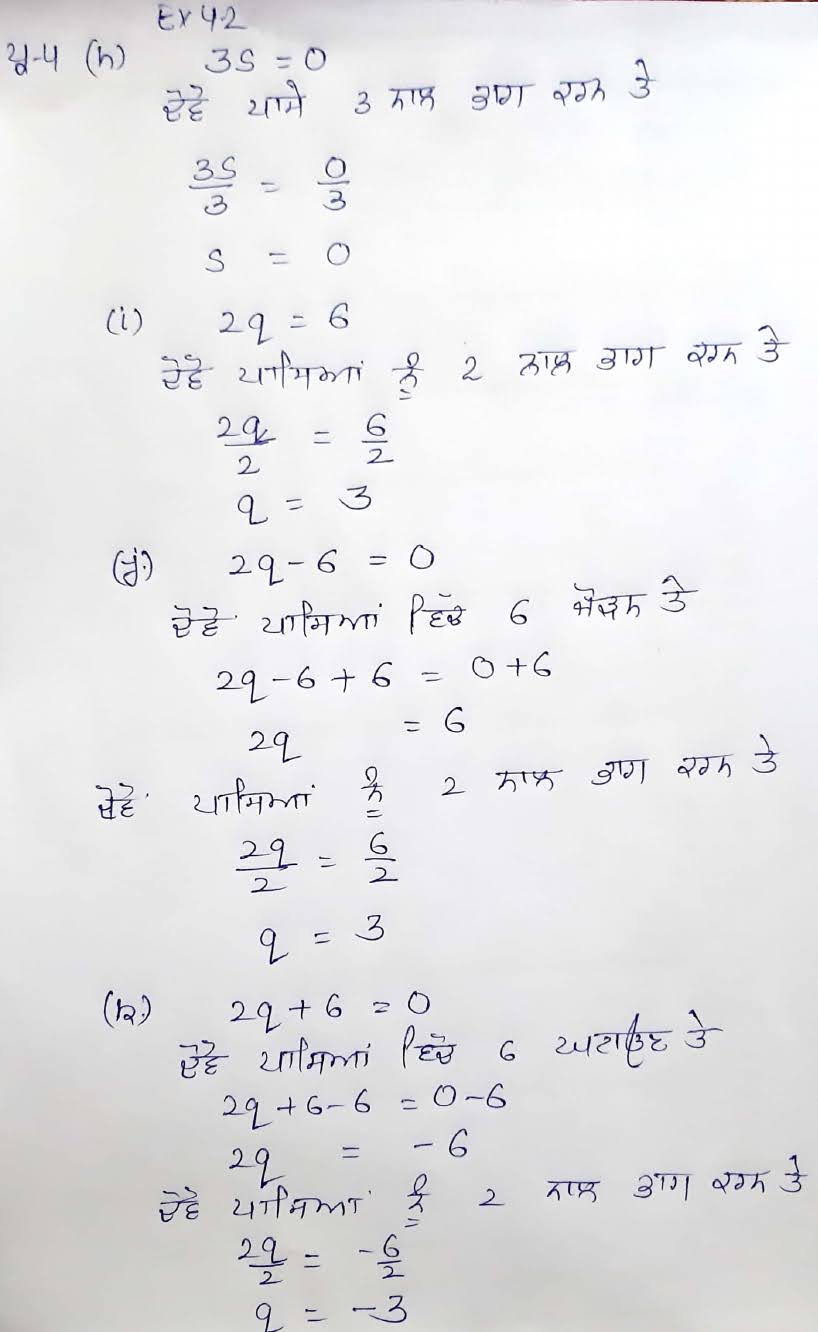 Ex 4.2
ਪ੍ਰ-4 (h) 3s = 0
ਦੋਵੇਂ ਪਾਸੇ 3 ਨਾਲ ਭਾਗ ਕਰਨ ਤੇ
3s/3 = 0/3
s = 0
(i) 2q = 6
ਦੋਵੇਂ ਪਾਸਿਆਂ ਨੂੰ 2 ਨਾਲ ਭਾਗ ਕਰਨ ਤੇ
2q/2 = 6/2
q = 3
(j) 2q - 6 = 0
ਦੋਵੇਂ ਪਾਸਿਆਂ ਵਿੱਚ 6 ਜੋੜਨ ਤੇ
2q - 6 + 6 = 0 + 6
2q = 6
ਦੋਵੇਂ ਪਾਸਿਆਂ ਨੂੰ 2 ਨਾਲ ਭਾਗ ਕਰਨ ਤੇ
2q/2 = 6/2
q = 3
(k) 2q + 6 = 0
ਦੋਵੇਂ ਪਾਸਿਆਂ ਵਿੱਚੋਂ 6 ਘਟਾਉਣ ਤੇ
2q + 6 - 6 = 0 - 6
2q = - 6
ਦੋਵੇਂ ਪਾਸਿਆਂ ਨੂੰ 2 ਨਾਲ ਭਾਗ ਕਰਨ ਤੇ
2q/2 = -6/2
q = -3